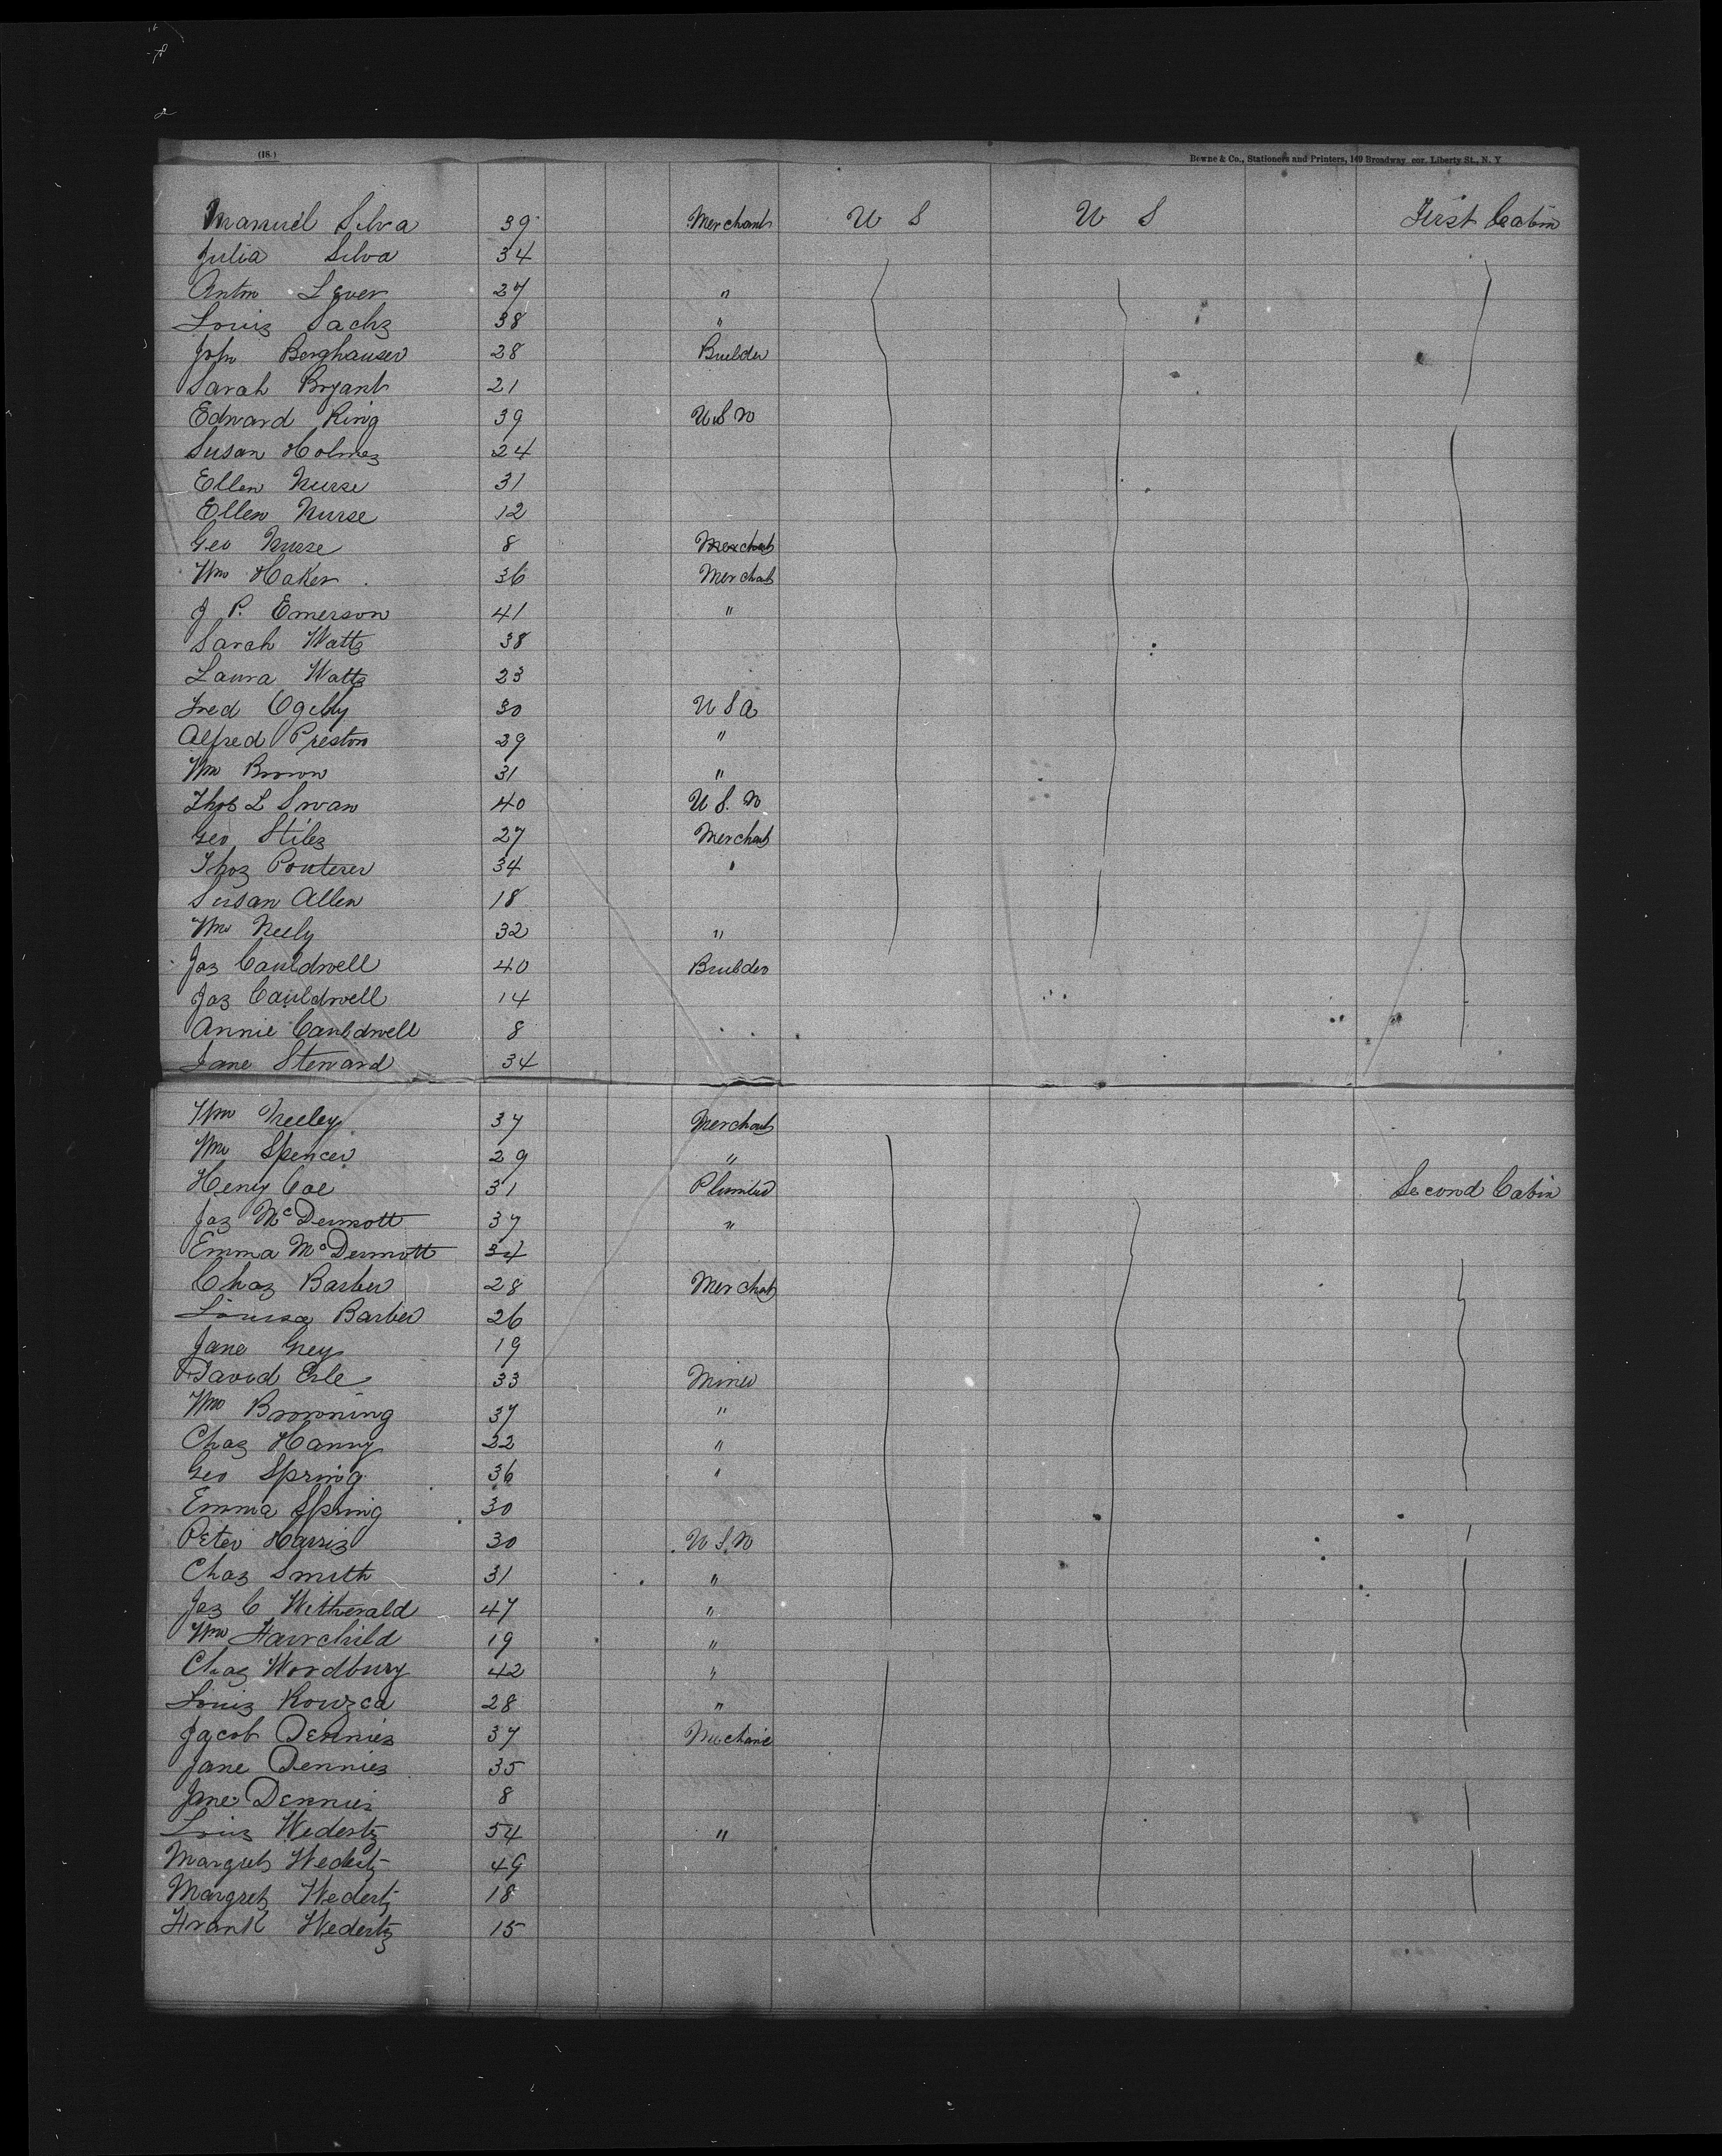 (18.) Downe & Co., Stationers and Printers, 169 Broadway cor. Liberty St., N. Y
Manuel Silva 39 Merchant U S U S First Cabin
Julia Silva 34
Anton Lever 27 "
Louis Sachs 38 "
John Berghauser 28 Builder
Sarah Bryant 21
Edward Ring 39 U S N
Susan Holmes 24
Ellen Nurse 31
Ellen Nurse 12
Geo Nurse 8 Merchant
Wm Haker 36 Merchat
J P. Emerson 41 "
Sarah Watts 38
Laura Watts 23
Fred Ogilby 30 U S A
Alfred Preston 29 "
Wm Brown 31 "
Thos L Swan 40 U S. N
Geo Stiles 27 Merchant
Thos Pouterer 34 "
Susan Allen 18
Wm Neely 32 "
Jas Cauldwell 40 Builder
Jas Cauldwell 14
Annie Cauldwell 8
Jane Steward 34
Wm Neeley 37 Merchant
Wm Spencer 29 "
Henry Coe 31 Plumber Second Cabin
Jas McDermott 37 "
Emma McDermott 34
Chas Barber 28 Merchat
Louisa Barber 26
Jane Grey 19
David Erle 33 Miner
Wm Browning 37 "
Chas Hanny 22 "
Geo Spring 36 "
Emma Spring 30
Peter Harris 30 U S. N
Chas Smith 31 "
Jas C Witherald 47 "
Wm Fairchild 19 "
Chas Woodbury 42 "
Louis 28 "
Jacob Dennies 37 Mechanic
Jane Dennies 35
Jane Dennies 8
Louis Wedertz 54 "
Margret Wedertz 49
Margret Wedertz 18
Frank Wedertz 15